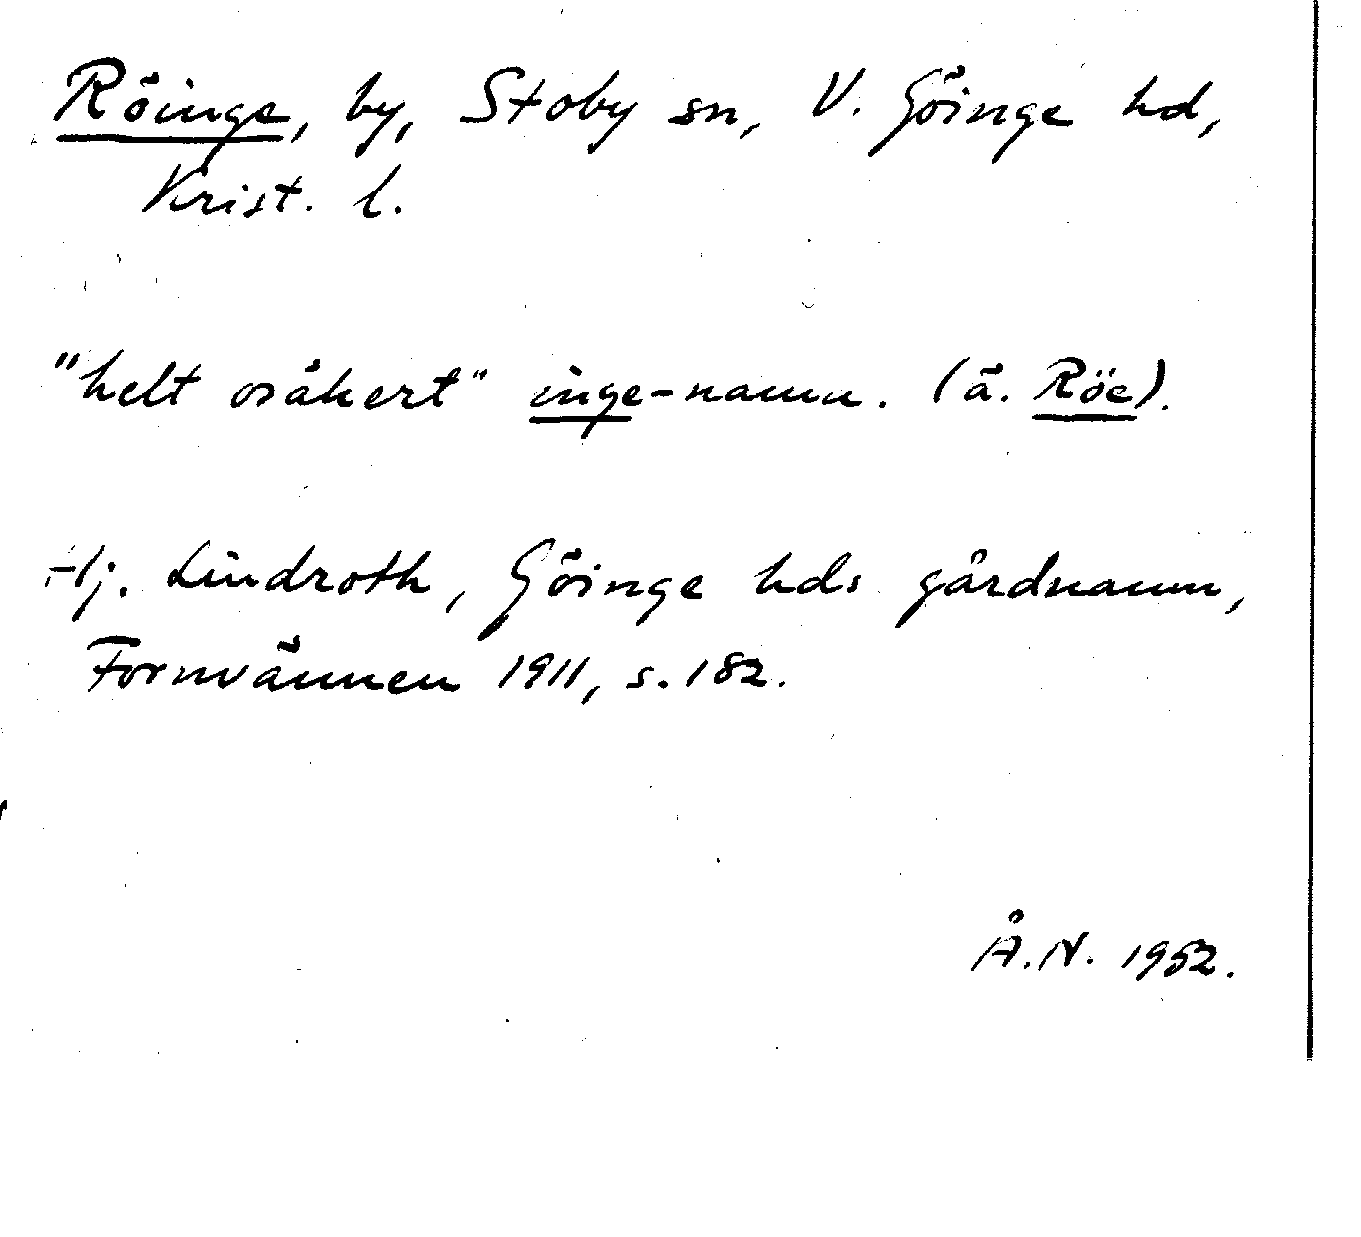 Röinge, by, Stoby sn, V. Göinge hd,
Krist. l.
"helt osäkert" inge-namn. (ä. Röe).
Hj. Lindroth, Göinge hds gårdnamn,
Fornvännen 1911, s. 182.
Å.N. 1952.